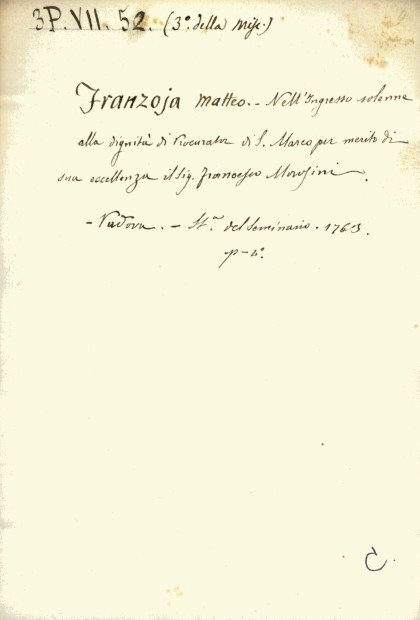 3P. VII. 52. (3º della Misc.)
Franzoja Matteo. - Nell'Ingresso solenne
alla dignità di Procurator di S. Marco per merito di
sua eccellenza il Sig. Francesco Morosini
- Padova. - St.ª del Seminario. 1763.
p-4º.
C.